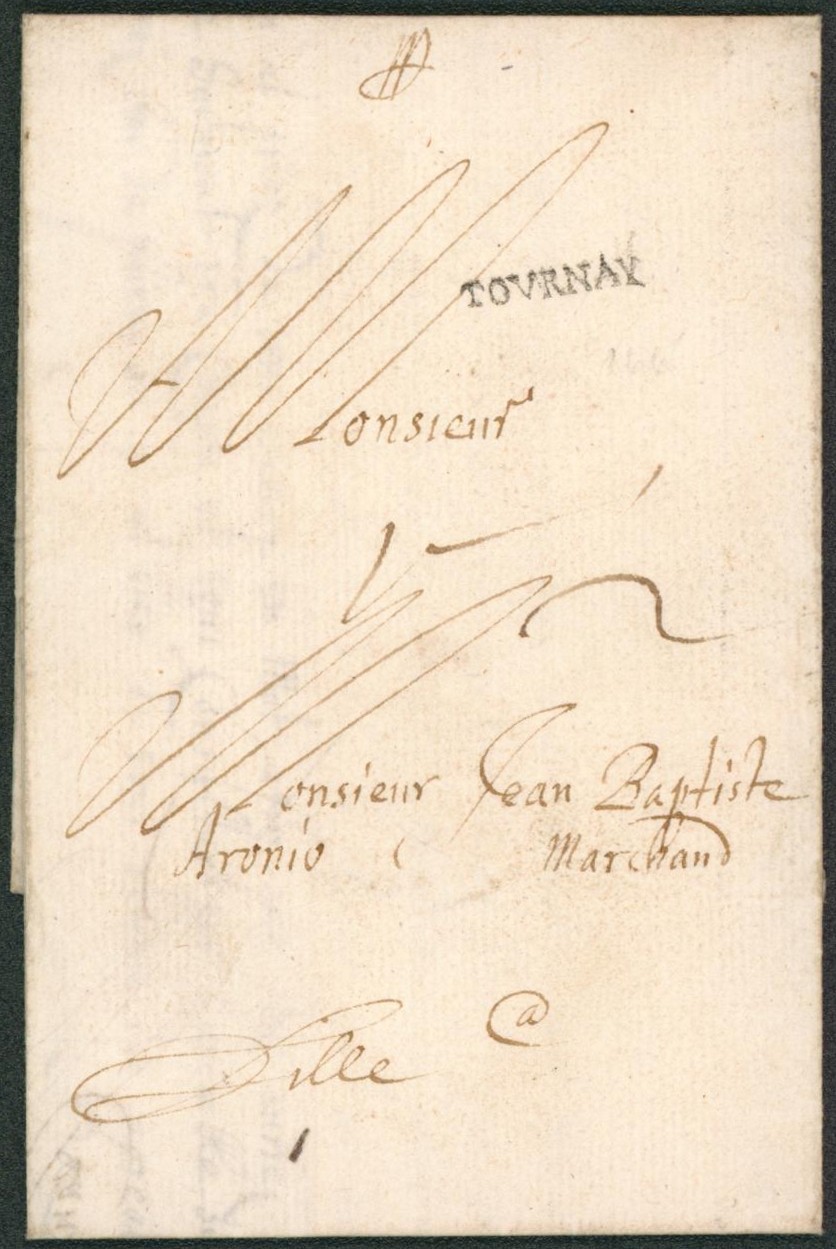 TOVRNAY
Monsieur
Monsieur Jean Baptiste
Aronio Marchand
a
Lille